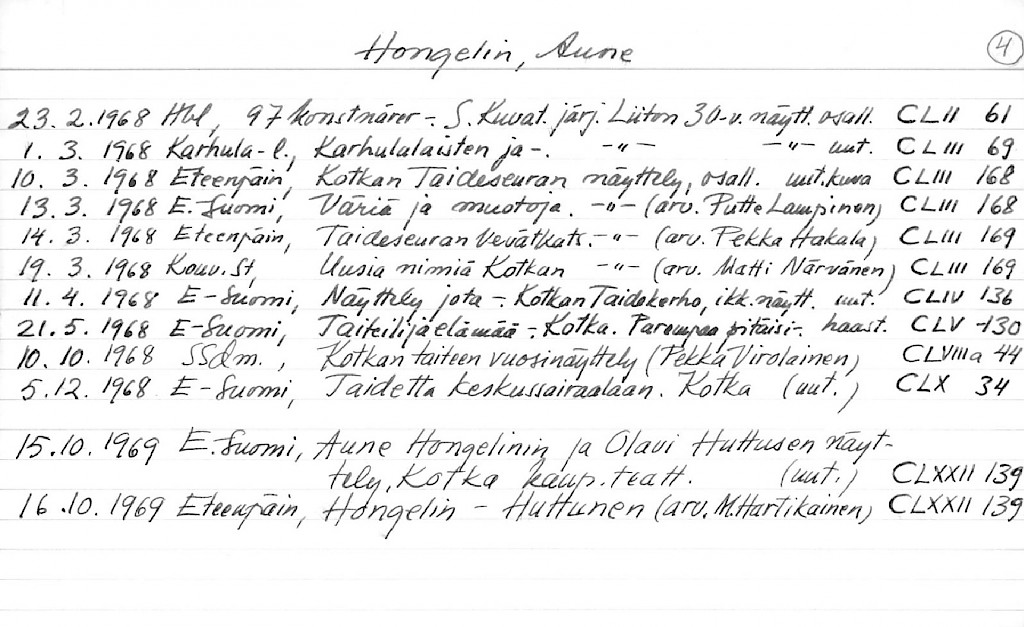 Hongelin, Aune 4
23. 2. 1968 Hbl, 97 konstnärer -. S. Kuvat. järj. Liiton 30-v. näytt. osall. CLII 61
1. 3. 1968 Karhula-l., Karhulalaisten ja -. -"- -"- uut. CLIII 69
10. 3. 1968 Eteenpäin, Kotkan Taideseuran näyttely, osall. uut.kuva CLIII 168
13. 3. 1968 E. Suomi, Väriä ja muotoja. -"- (arv. Putte Lampinen) CLIII 168
14. 3. 1968 Eteenpäin, Taideseuran kevätkats. -"- (arv. Pekka Hakala) CLIII 169
19. 3. 1968 Kouv. St, Uusia nimiä Kotkan -"- (arv. Matti Närvänen) CLIII 169
11. 4. 1968 E-Suomi, Näyttely jota -. Kotkan Taidekerho, ikk. näytt. uut. CLIV 136
21. 5. 1968 E-Suomi, Taiteilijaelämää -. Kotka. Parempaa pitäisi -. haast. CLV 130
10. 10. 1968 SSdm., Kotkan taiteen vuosinäyttely (Pekka Virolainen) CLVIIIa 44
5. 12. 1968 E-Suomi, Taidetta keskussairaalaan. Kotka (uut.) CLX 34
15. 10. 1969 E. Suomi, Aune Hongelinin ja Olavi Huttusen näyt-
tely, Kotka kaup. teatt. (uut.) CLXXII 139
16. 10. 1969 Eteenpäin, Hongelin - Huttunen (arv. M. Hartikainen) CLXXII 139